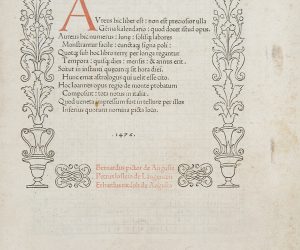 AVreus hic liber est: non est preciosior ulla
Gēma kalendario: quod docet istud opus.
Aureus hic numerus: lune: solisq; labores
Monstrantur facile: cunctaq; signa poli:
Quotq; sub hoc libro terre per longa regantur
Tempora: quisq; dies: mensis: & annus erit.
Scitur in instanti quæcunq; sit hora diei.
Hunc emat astrologus qui velit esse cito.
Hoc Ioannes opus regio de monte probatum
Composuit: tota notus in italia.
Quod ueneta impressum fuit in tellure per illos
Inferius quorum nomina picta loco.
.1476.
Bernardus pictor de Augusta
Petrus loslein de Langencen
Erhardus ratdolt de Augusta